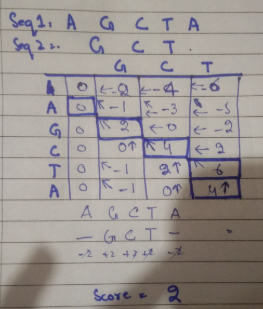 Seq1: A G C T A
Seq2: G C T
G C T
A 0 ←-2 ←-4 ←-6
A 0 ↖-1 ↖-3 ↖-5
G 0 ↖2 ←0 ←-2
C 0 0↑ ↖4 ←2
T 0 ↖-1 2↑ ↖6
A 0 ↖-1 0↑ 4↑
A G C T A
- G C T -
-2 +2 +2 +2 -2 =
Score = 2